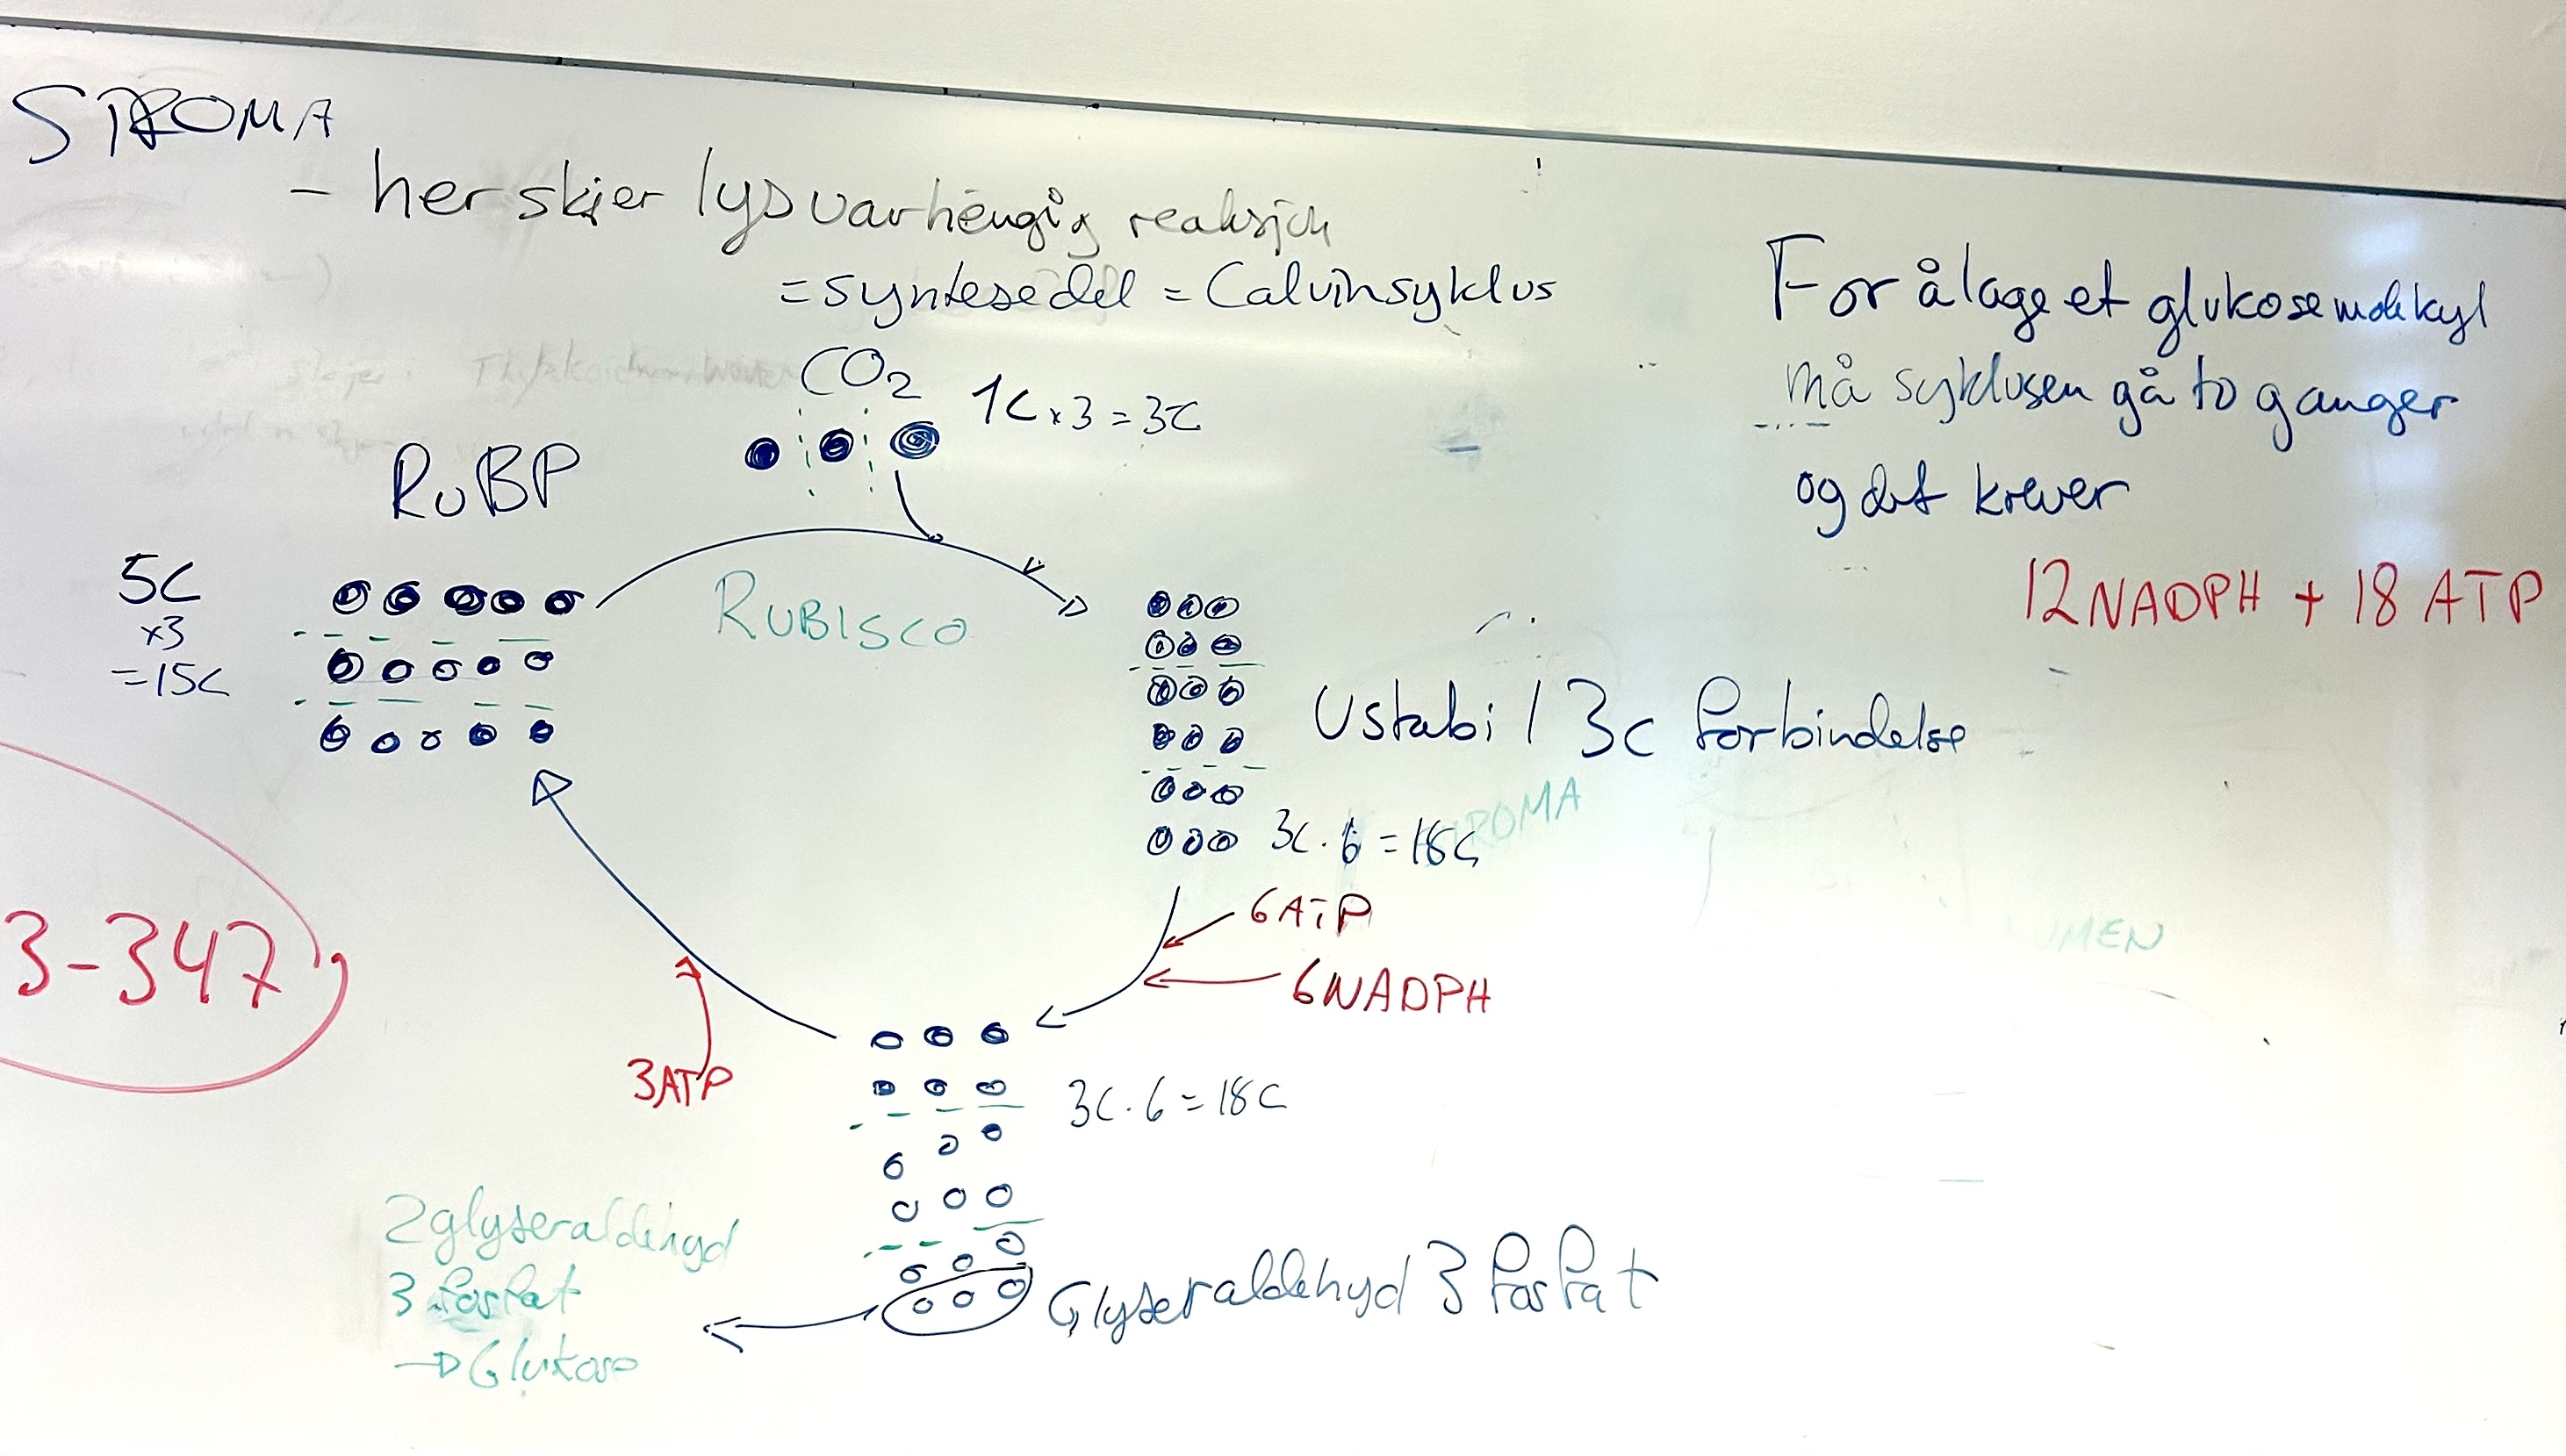 STROMA
- her skjer lysuavhengig reaksjon
= syntesedel = Calvinsyklus
CO2
1C x 3 = 3C
RuBP
5C
x3
= 15C
RUBISCO
Ustabil 3c forbindelse
3C · 6 = 18C
6ATP
6NADPH
3ATP
3C · 6 = 18C
Glyseraldehyd 3 fosfat
2 glyseraldehyd
3 fosfat
→ Glukose
3-347
For å lage et glukosemolekyl
må syklusen gå to ganger
og det krever
12 NADPH + 18 ATP